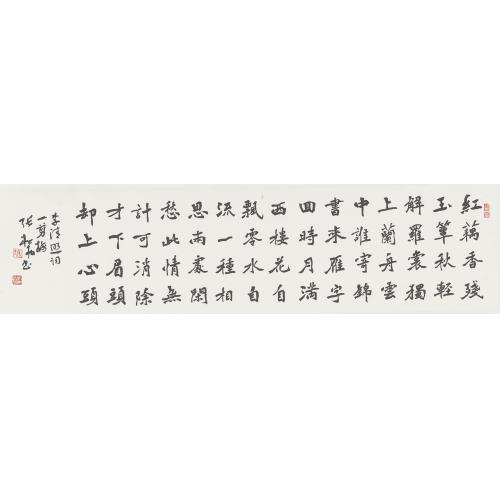 紅藕香殘
玉簟秋輕
解羅裳獨
上蘭舟雲
中誰寄錦
書來雁字
回時月滿
西樓花自
飄零水自
流一種相
思兩處閑
愁此情無
計可消除
才下眉頭
却上心頭
李清照词
一剪梅
张书